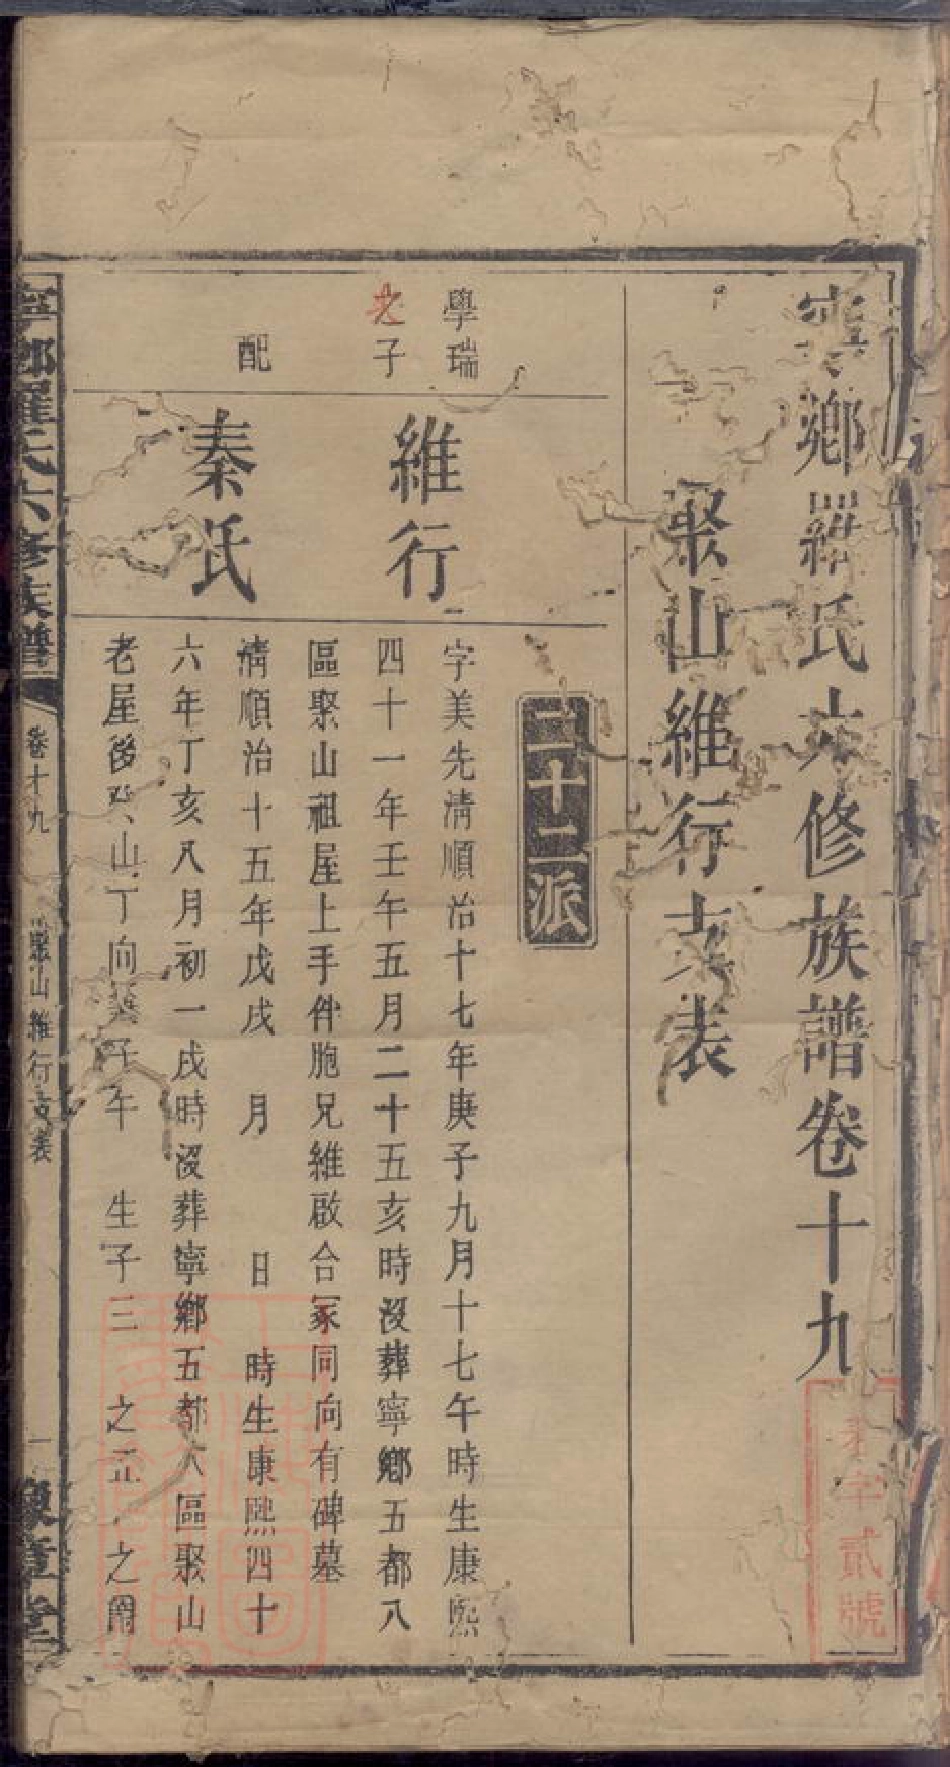 寧鄉羅氏六修族譜卷十九
聚山維行支表
二十二派
學瑞
子
維行
字美先淸順治十七年庚子九月十七午時生康熙
四十一年壬午五月二十五亥時沒葬寧鄉五都八
區聚山祖屋上手伴胞兄維啟合冢同向有碑墓
配
秦氏
淸順治十五年戊戌 月 日 時生康熙四十
六年丁亥八月初一戌時沒葬寧鄉五都八區聚山
老屋後 山丁向兼子午 生子三 之正 之 
寧鄉羅氏六修族譜
卷十九
聚山維行支表
一
豫章堂
字貳號